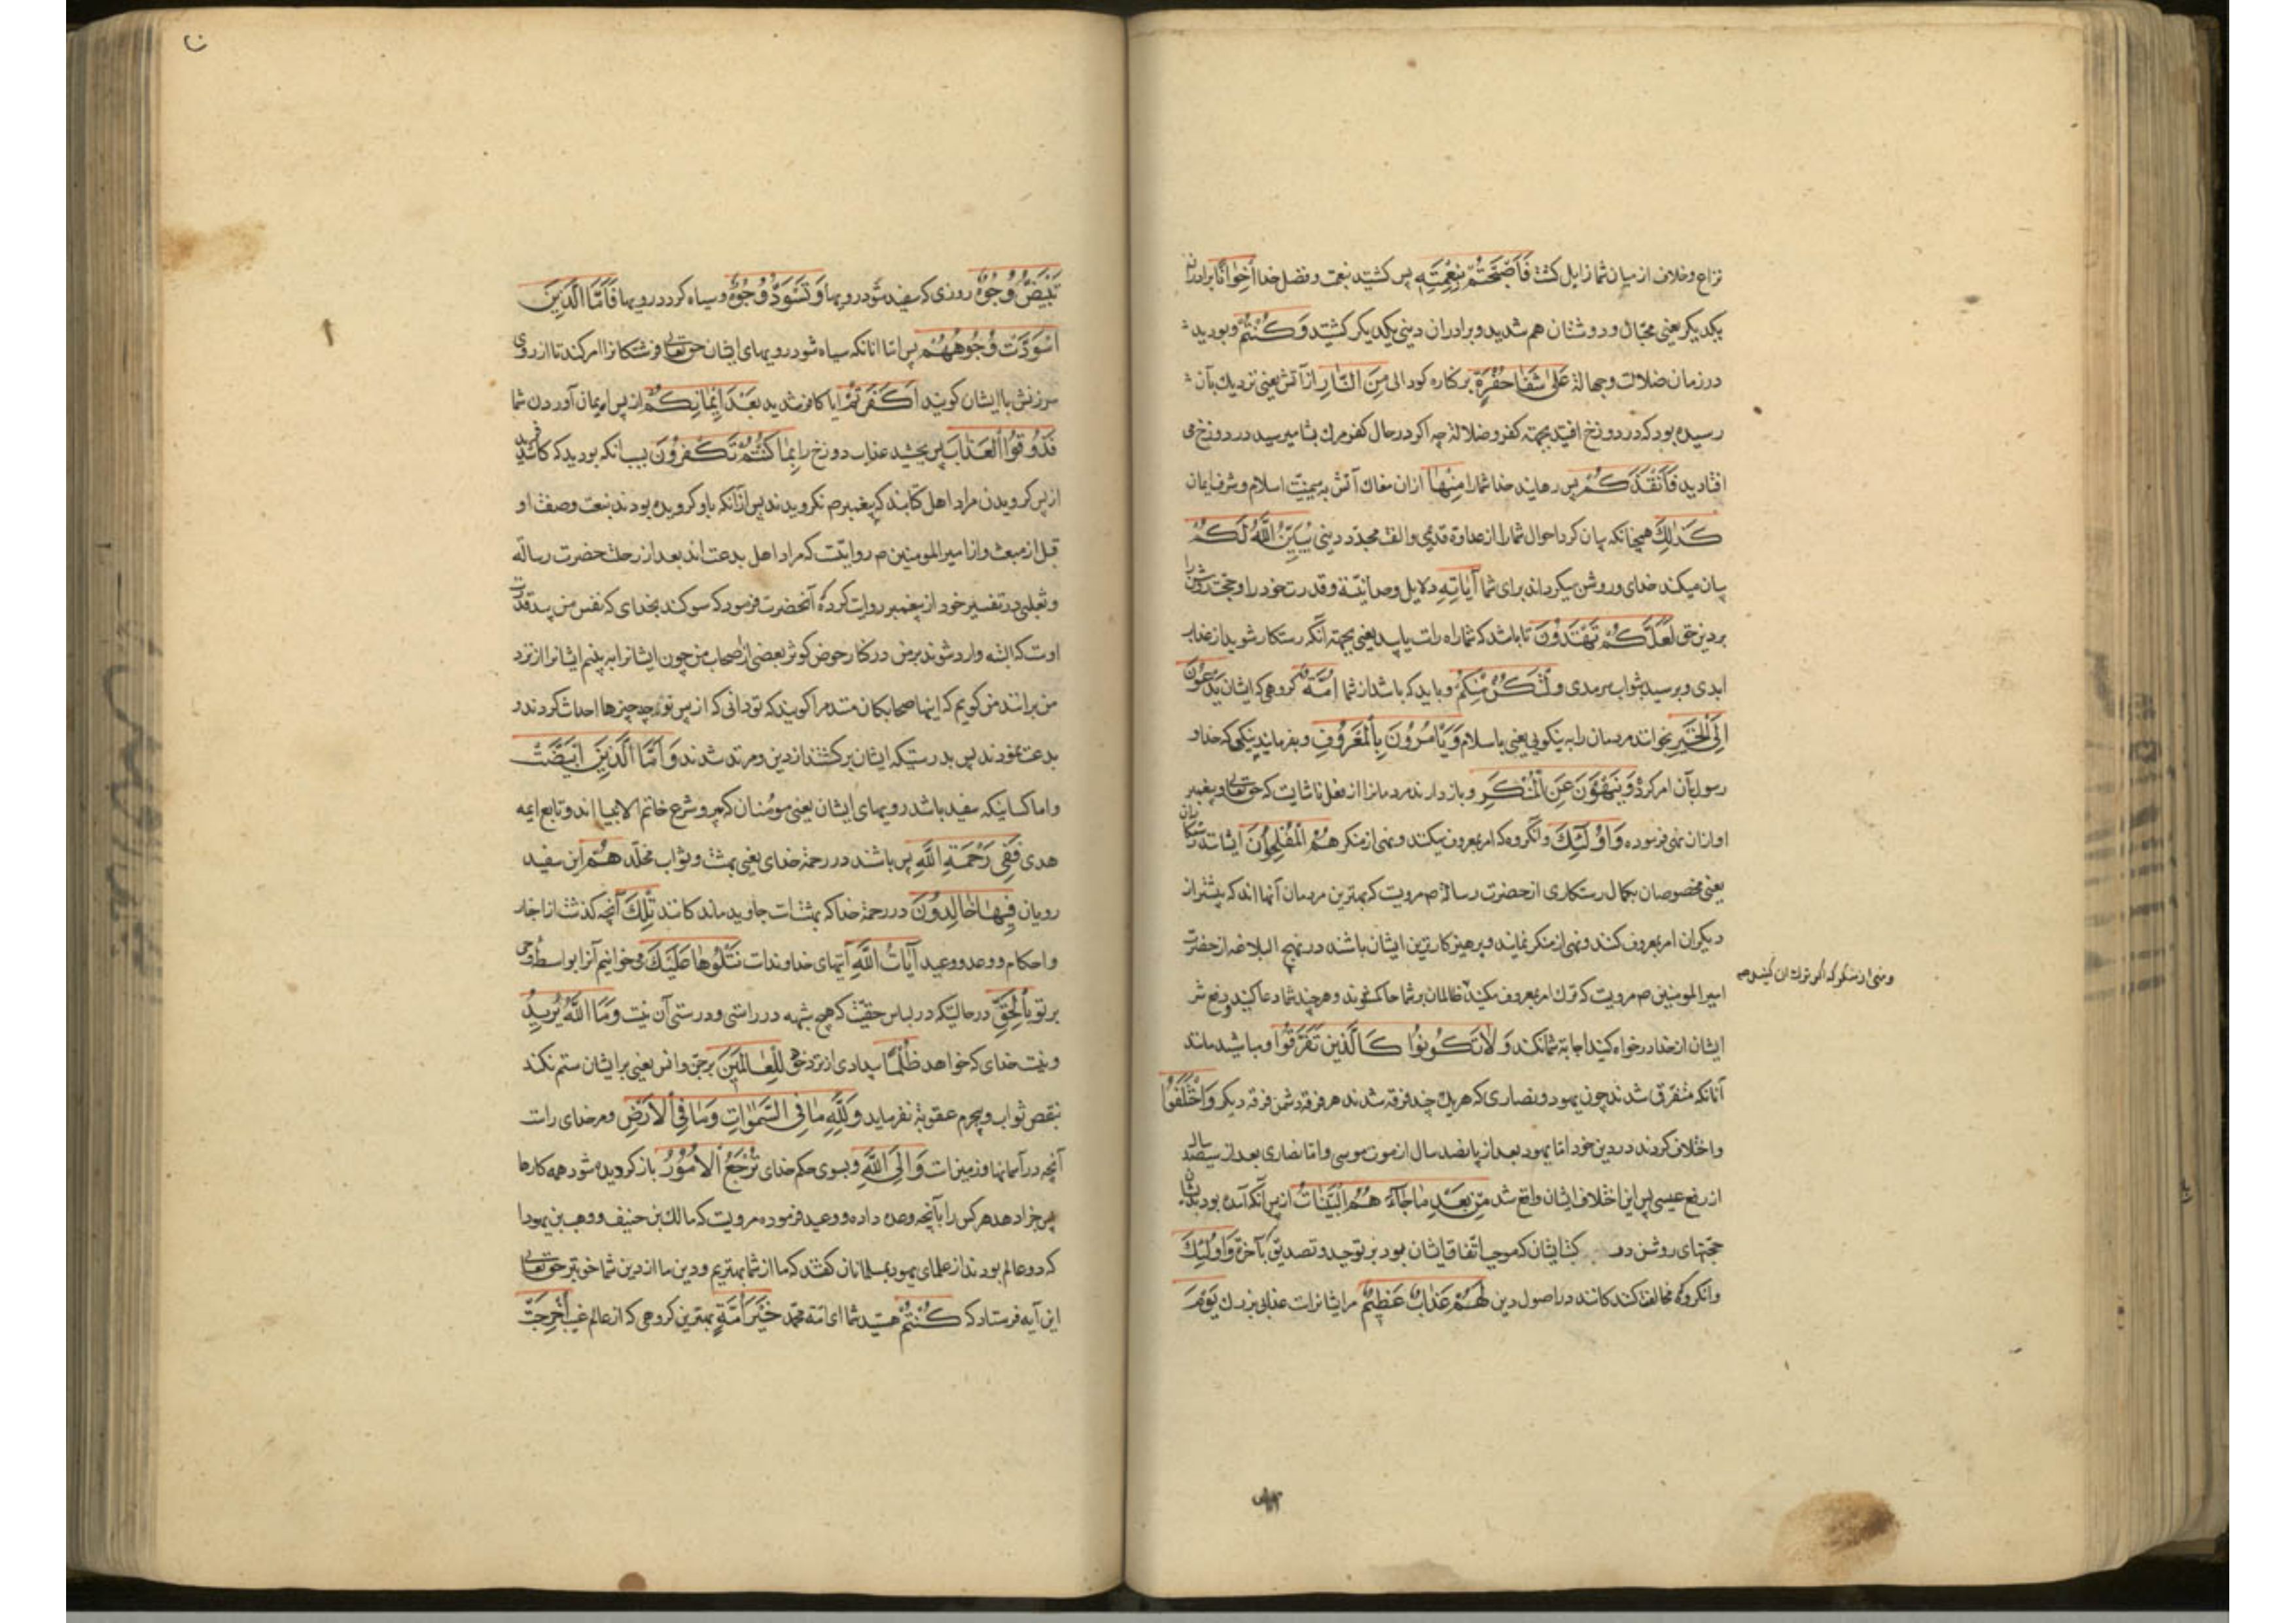 نزاع و خلاف از میان شما زایل کشت فَاَصْبَحْتُمْ بِنِعْمَتِهِ پس کشتید بنعمت و فضل خدا اِخْوانًا برادران
یکدیکر یعنی محبّان و دوستان هم شدید و برادران دینی یکدیکر کشتید وَكُنْتُمْ و بودید
در زمان ضلالت و جهالة عَلیٰ شَفَا حُفْرَةٍ بر کناره کودالی مِنَ النّارِ از آتش یعنی نزدیك بآن
رسیده بود که در دوزخ افتید بجهته کفر و ضلالة چه اکر در حال کفر مرك بشما میرسید در دوزخ می
افتادید فَاَنْقَذَكُمْ پس رهانید خدا شما را مِنْها ازان مغاك آتش به یمنیّت اسلام و شرف ایمان
كَذٰلِكَ همچنانکه بیان کرد احوال شما را از عداوة قدیمی و الفت مجدّد دینی يُبَيِّنُ اللّٰهُ لَكُمْ
بیان میکند خدای و روشن میکرداند برای شما آياتِهِ دلایل وحدانیّة و قدرت خود را و حجت روشن را
بر دین حق لَعَلَّكُمْ تَهْتَدُونَ تا باشد که شما راه راست یابید یعنی بجهته آنکه رستکار شوید از عذاب
ابدی و برسید بثواب سرمدی وَلْتَكُنْ مِنْكُمْ و باید که باشد از شما اُمَّةٌ کروهی که ایشان يَدْعُونَ
اِلَى الْخَيْرِ بخوانند مردمان را به نیکویی یعنی باسلام وَيَاْمُرُونَ بِالْمَعْرُوفِ و بفرمایند بنیکی که خدا و
رسول بآن امر کرد وَيَنْهَوْنَ عَنِ الْمُنْكَرِ و باز دارند مردمانرا از فعل ناشایست که حق تعالی و پیغمبر
او ازان نهی فرموده وَاُولٰئِكَ و آنکروه که امر بمعروف میکنند و نهی از منکر هُمُ الْمُفْلِحُونَ ایشانند رستکاران
یعنی مخصوصان بکمال رستکاری از حضرت رسالة ص مرویست که بهترین مردمان آنها اند که بیشتر از
دیکران امر بمعروف کنند و نهی از منکر نمایند و پرهیزکارترین ایشان باشند در نهج البلاغه از حضرت
امیر المومنین ص مرویست که ترك امر بمعروف مکنید ظالمان بر شما حاکم شوند و هر چند شما دعا کنید و دفع شر
و نهی از منکر که اکر ترك ان کنید
ایشان از خدا درخواه کنید اجابة شما نکند وَلا تَكُونُوا كَالَّذينَ تَفَرَّقُوا و مباشید مانند
آنانکه متفرّق شدند چون یهود و نصاری که هر یك چند فرقه شدند هر فرقه دشمن فرقه دیکر وَاخْتَلَفُوا
و اختلاف کردند در دین خود امّا یهود بعد از پانصد سال از موت موسی و امّا نصاری بعد از سیصد سال
از رفع عیسی پس این اختلاف ایشان واقع شد مِنْ بَعْدِ ما جاءَهُمُ الْبَيِّناتُ از پس آنکه آمده بود بدیشان
حجّتهای روشن در کتاب ایشان که موجب اتّفاق ایشان بود بر توحید و تصدیق بآخرة وَاُولٰئِكَ
و انکروه که مخالفت کنندکانند در اصول دین لَهُمْ عَذابٌ عَظيمٌ مر ایشانراست عذابی بزرك يَوْمَ
تَبْيَضُّ وُجُوهٌ روزی که سفید شود رویها وَتَسْوَدُّ وُجُوهٌ و سیاه کردد رویها فَاَمَّا الَّذِينَ
اسْوَدَّتْ وُجُوهُهُمْ پس امّا انانکه سیاه شود رویهای ایشان حق تعالی فرشتکانرا امر کند تا از روی
سرزنش با ایشان کویند اَكَفَرْتُمْ ایا کافر شدید بَعْدَ اِيْمانِكُمْ از پس ایمان آوردن شما
فَذُوقُوا الْعَذابَ پس بچشید عذاب دوزخ را بِما كُنْتُمْ تَكْفُرُونَ بسبب انکه بودید که کافر شدید
از پس کرویدن مراد اهل کتابند که به پیغمبر ص نکرویدند پس ازآنکه باو کرویده بودند بنعت و صفت او
قبل از مبعث و از امیر المومنین ص روایتست که مراد اهل بدعت اند بعد از رحلت حضرت رسالة
و ثعلبی در تفسیر خود از پیغمبر روایت کرده که آنحضرت فرمود که سوکند بخدای که نفس من بید قدرت
اوست که البتّه وارد شوند بر من در کنار حوض کوثر بعضی از اصحاب من چون ایشانرا به بینم ایشانرا از نزد
من برانند من کویم که اینها صحابکان منند مرا کویند که تو ندانی که از پس تو چه چیزها احداث کردند و
بدعت نمودند پس بدرستیکه ایشان برکشتند از دین و مرتد شدند وَاَمَّا الَّذِينَ ابْيَضَّتْ
و اما کسانیکه سفید باشد رویهای ایشان یعنی مومنان که پیرو شرع خاتم الانبیا اند و تابع ایمه
هدی فَفِي رَحْمَةِ اللّٰهِ پس باشند در رحمة خدای یعنی بهشت و ثواب مخلّد هُمْ این سفید
رویان فِيها خالِدُونَ در رحمة خدا که بهشتست جاوید ماندکانند تِلْكَ آنچه کذشت از اخبار
و احکام و وعد و وعید آياتُ اللّٰهِ آیتهای خداوندست نَتْلُوها عَلَيْكَ میخوانیم آنرا بواسطهٔ وحی
بر تو بِالْحَقِّ درحالتیکه در لباس حقیّتست که هیچ شبهه در راستی و درستی آن نیست وَمَا اللّٰهُ يُريدُ
و نیست خدای که خواهد ظُلْمًا بیدادی از نزد حق لِلْعالَمينَ بر جن و انس یعنی بر ایشان ستم نکند
بنقص ثواب و بیجرم عقوبة نفرماید وَلِلّٰهِ ما فِي السَّمٰواتِ وَما فِي الْاَرْضِ و مر خدای راست
آنچه در آسمانها و زمینهاست وَاِلَى اللّٰهِ و بسوی حکم خدای تُرْجَعُ الْاُمُورُ باز کردیده شود همه کارها
پس جزا دهد هر کس را بآنچه وعده داده و وعید فرموده مرویست که مالك بن حنیف و وهب بن یهودا
که دو عالم بودند از علمای یهود بمسلمانان کفتند که ما از شما بهتریم و دین ما از دین شما خوبتر حق تعالی
این آیه فرستاد که كُنْتُمْ هستید شما ای امّة محمّد خَيْرَ اُمَّةٍ بهترین کروهی که از عالم غیب اُخْرِجَتْ